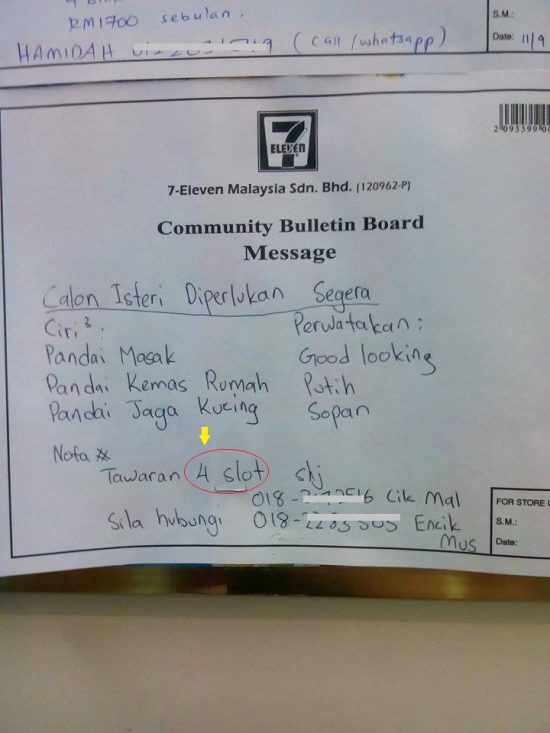 RM1700 sebulan.
HAMIDAH (call/whatsapp)
S.M.:
Date: 11/9
7
ELEVEN
7-Eleven Malaysia Sdn. Bhd. (120962-P)
Community Bulletin Board
Message
Calon Isteri Diperlukan Segera
Ciri²: Perwatakan:
Pandai Masak Good looking
Pandai Kemas Rumah Putih
Pandai Jaga Kucing Sopan
Nota
Tawaran 4 slot shj
018- 6 Cik Mal
Sila hubungi 018- Encik
Mus
FOR STORE
S.M.:
Date: